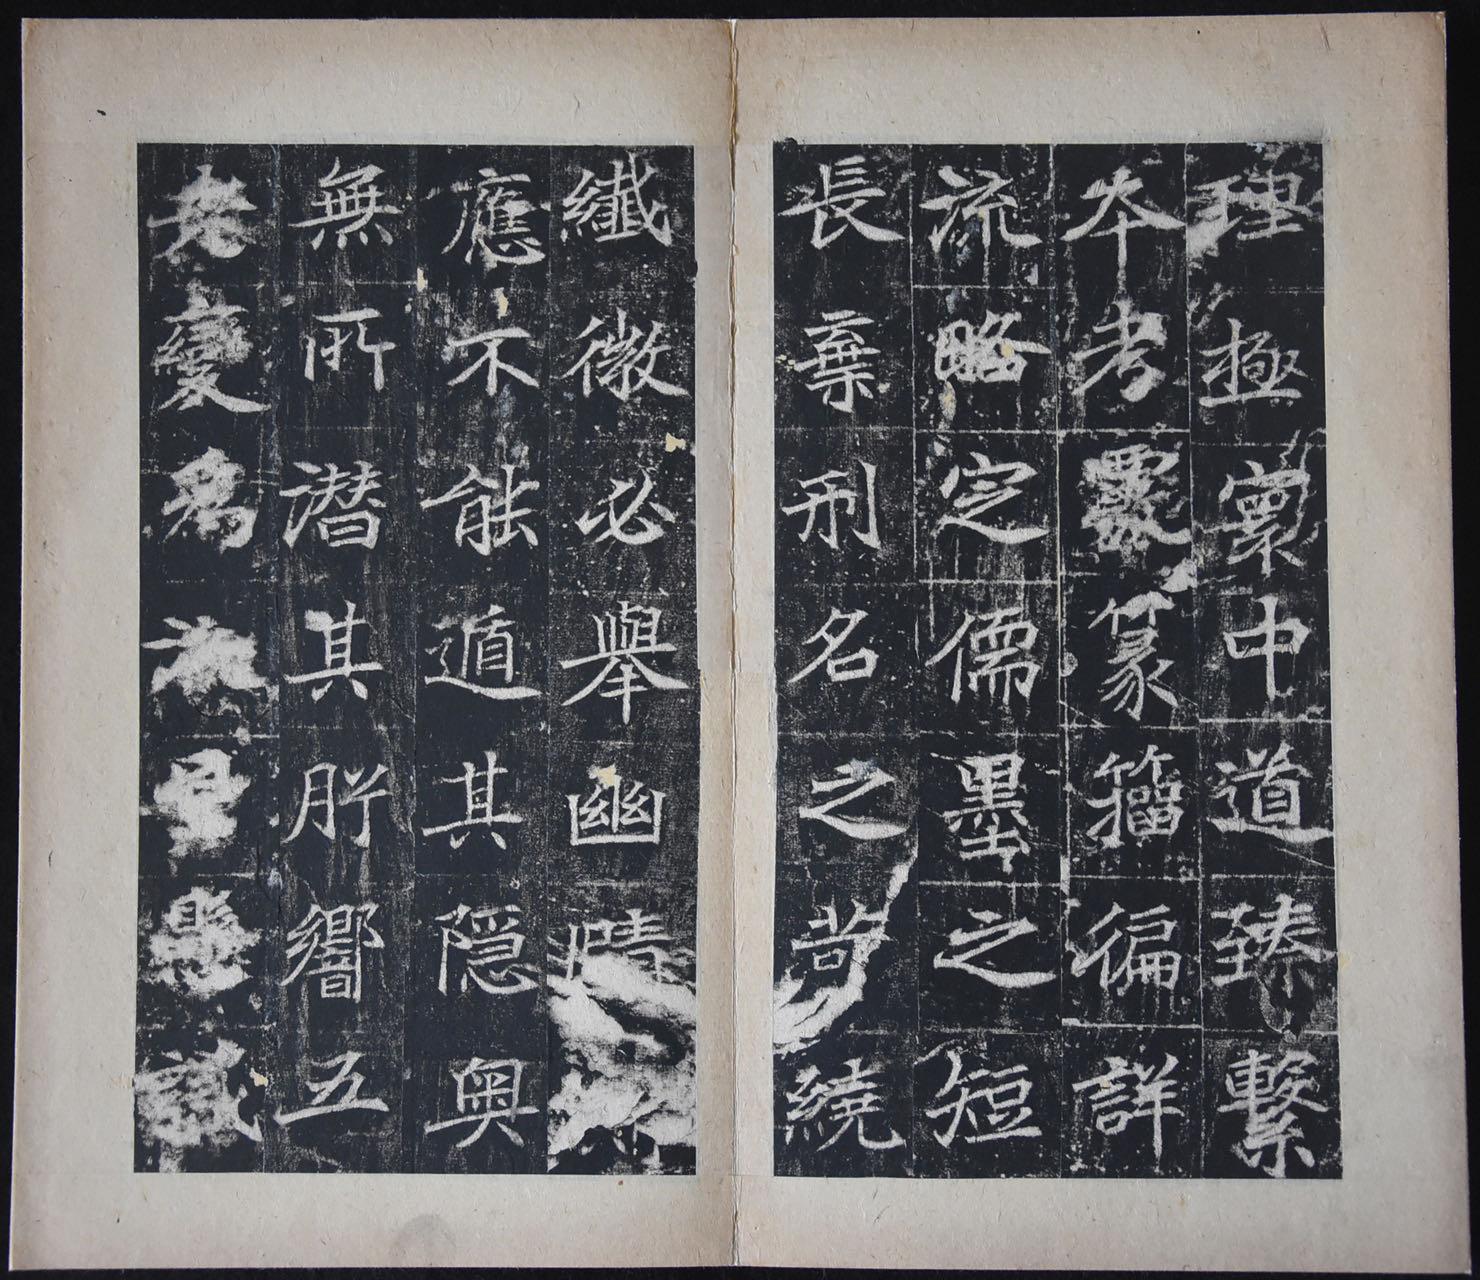 理極寰中道臻繫
本考覈篆籀徧詳
流略定儒墨之短
長棄刑名之苛繞
纖微必舉幽
應不能遁其隱奧
無所潛其形響五
老變為星懸識